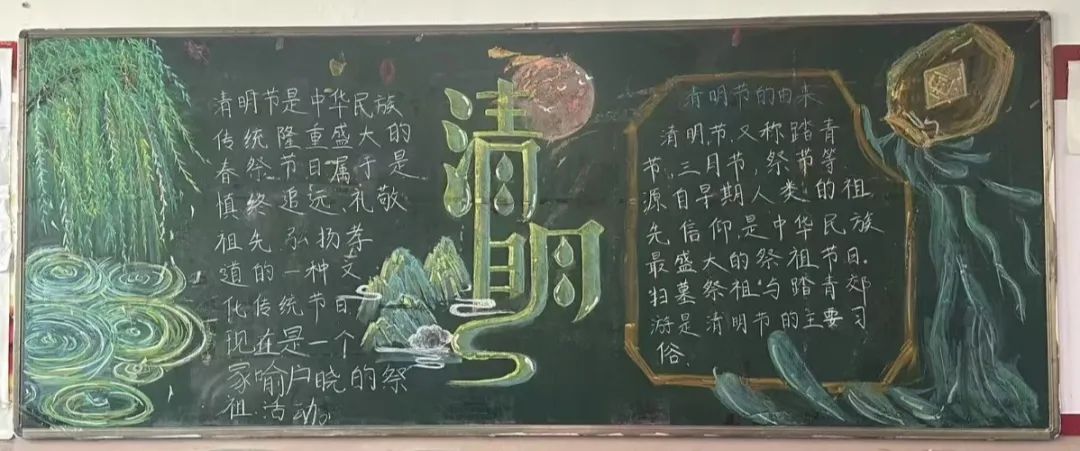 清明节是中华民族
传统隆重盛大的
春祭节日属于是
慎终追远、礼敬
祖先弘扬孝
道的一种文
化传统节日
现在是一个
家喻户晓的祭
祖活动。
清明
清明节的由来
清明节,又称踏青
节,三月节,祭节等
源自早期人类的祖
先信仰,是中华民族
最盛大的祭祖节日.
扫墓祭祖与踏青郊
游是清明节的主要习
俗.